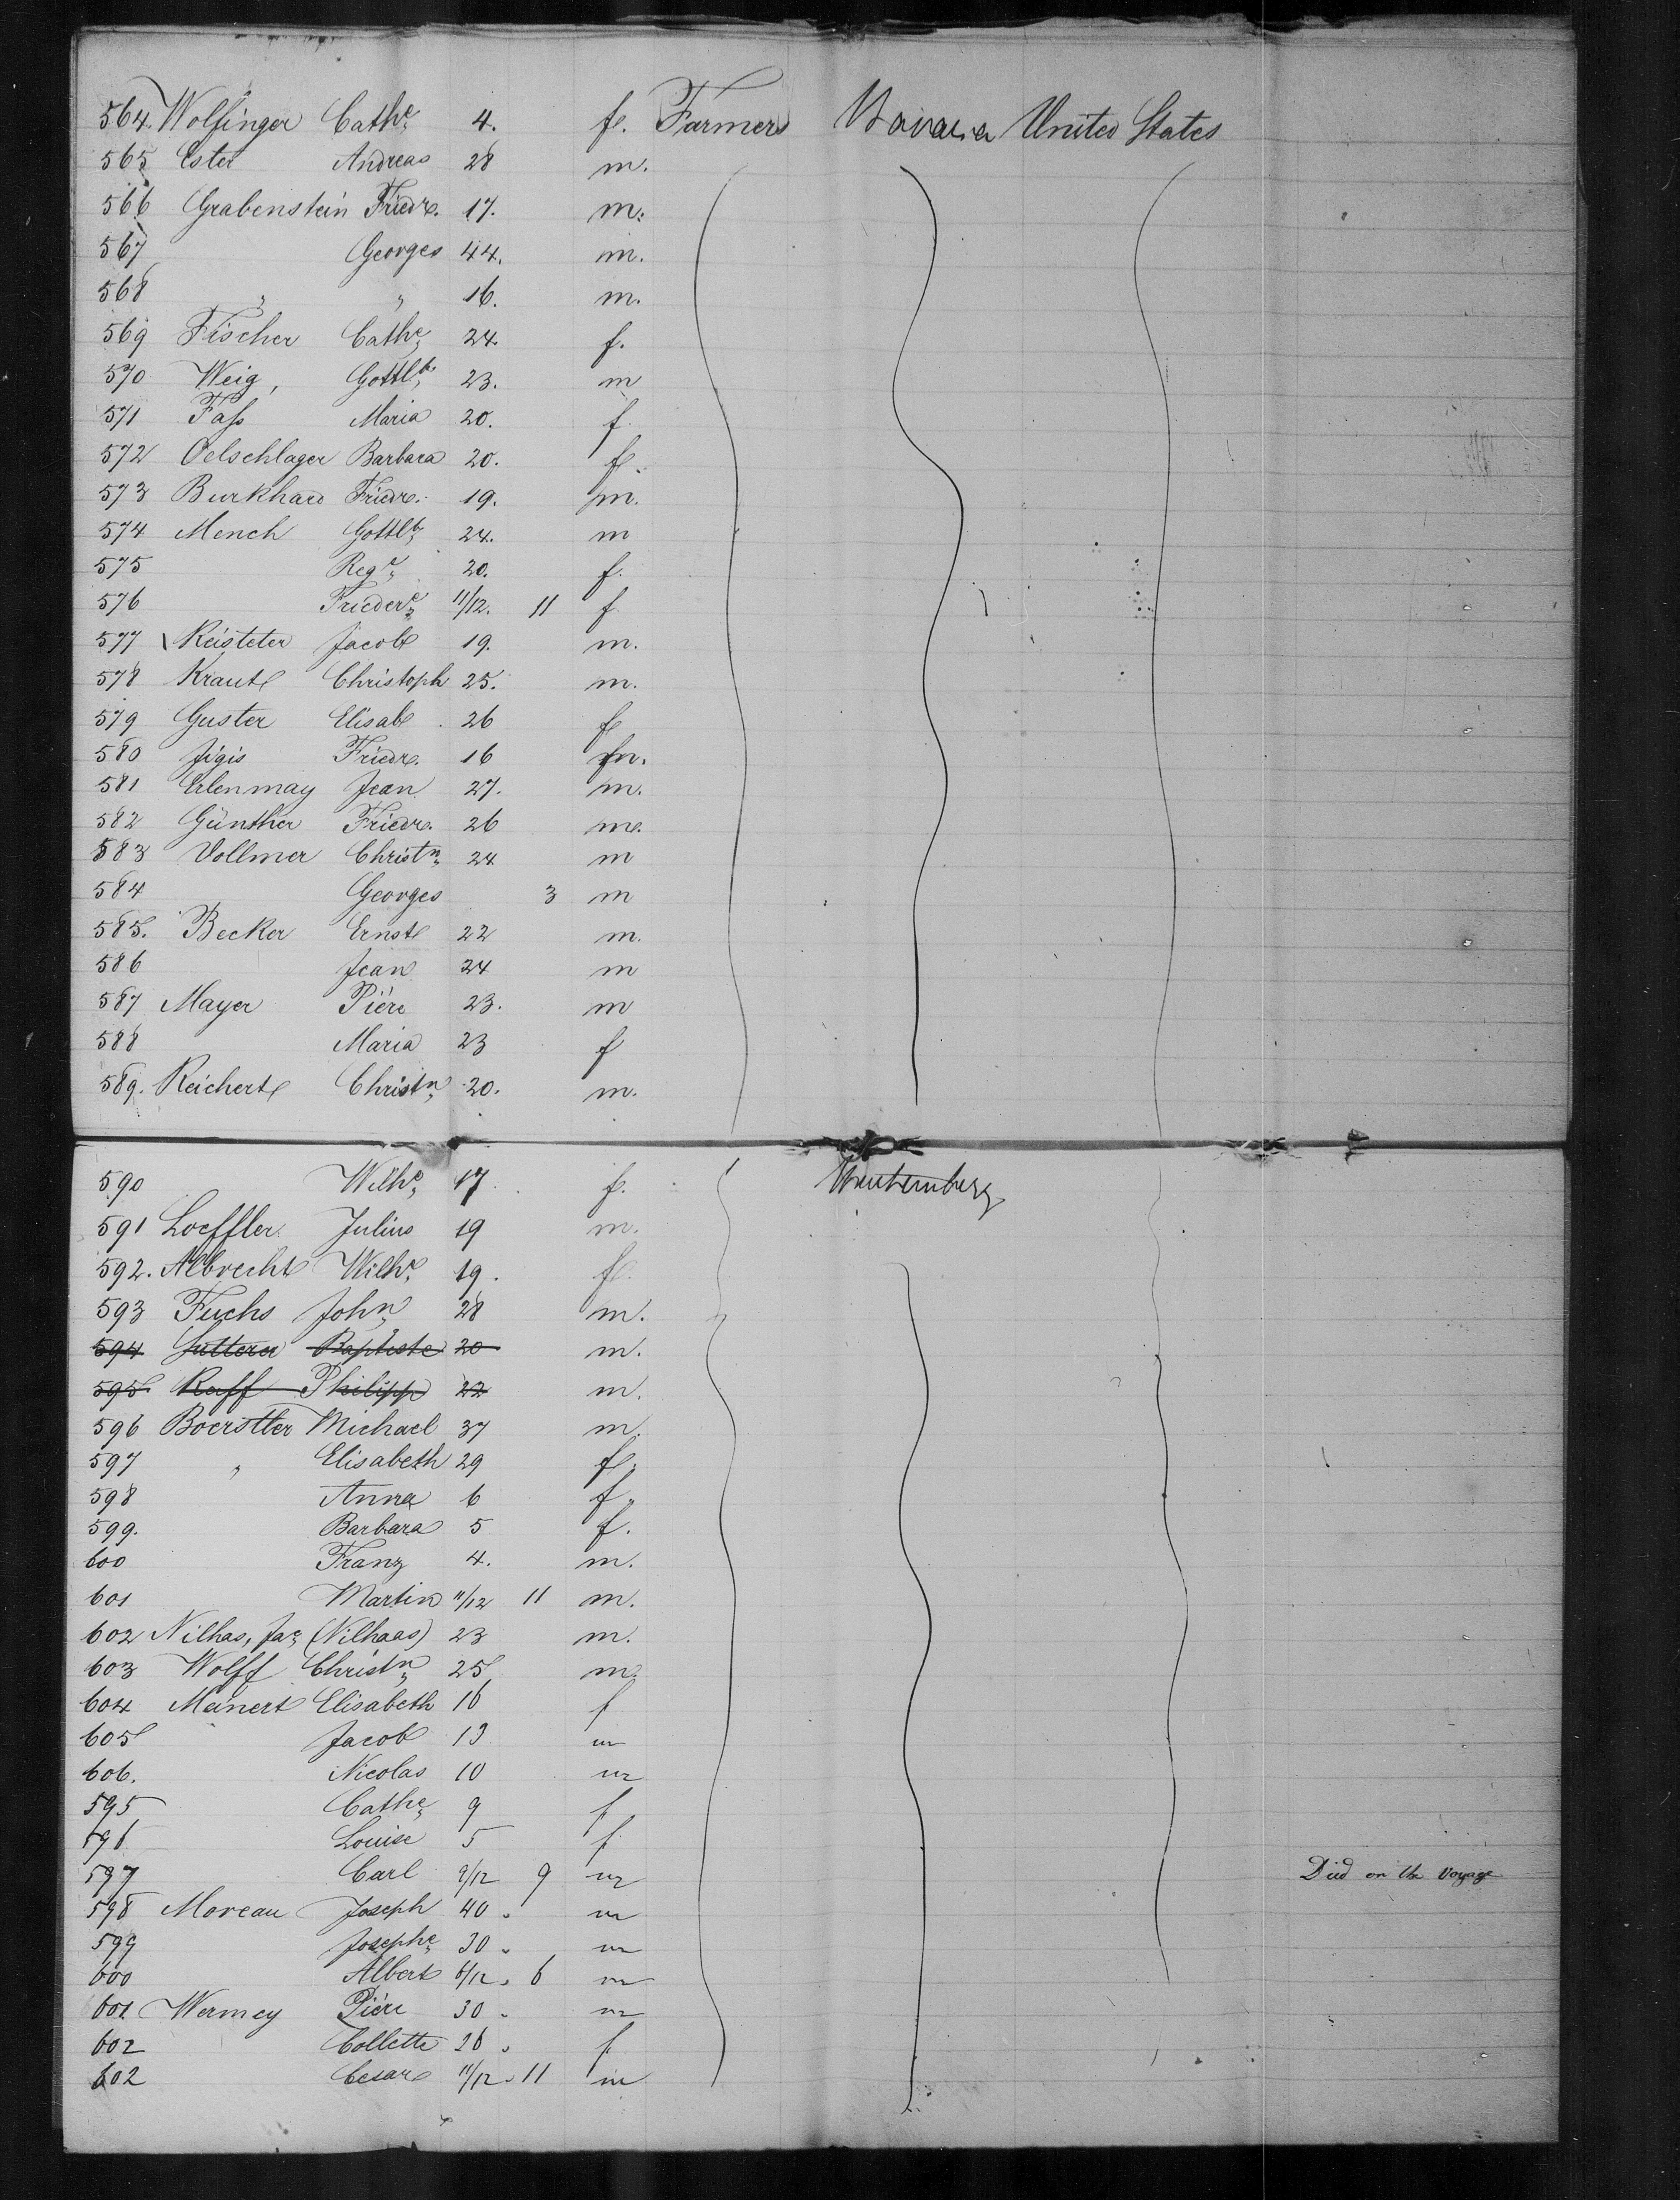 564. Wolfinger Cathe 4. f. Farmers Bavaria United States
565 Ester Andreas 28 m.
566 Grabenstein Friedr. 17. m.
567 Georges 44. m.
568 " " 16. m.
569 Fischer Cathe 24. f.
570 Weig, Gottlb 23. m
571 Fass Maria 20. f
572 Oelschlager Barbara 20. f.
573 Burkhard Friedr. 19. m.
574 Mench Gottlb 24. m
575 Rege 20. f.
576 Friedere 11/12. 11 f
577 Reisteter Jacob 19. m.
578 Kraut Christoph 25. m.
579 Guster Elisab 26 f
580 Jigis Friedr. 16 m.
581 Erlenmay Jean 27. m.
582 Günther Friedr. 26 m.
583 Vollmer Christn 24 m
584 Georges 3 m
585. Becker Ernst 22 m.
586 Jean 24 m
587 Mayer Piére 23. m
588 Maria 23 f
589. Reichert Christn 20. m.
590 Wilhe 17. f. Wurtemberg
591 Loeffler Julius 19 m.
592. Albrecht Wilhe 19. f.
593 Fuchs John 28 m.
594 Sutterer Baptiste 20 m.
595. Raff Philipp 22 m.
596 Boerstler Michael 37 m.
597 " Elisabeth 29 f.
598 Anna 6 f.
599. Barbara 5 f.
600 Franz 4. m.
601 Martin 11/12 11 m.
602 Nilhas, Jac (Nilhaas) 23 m.
603 Wolff Christn 25 m.
604 Meinert Elisabeth 16 f
605 Jacob 13 m
606. Nicolas 10 m
595 Cathe 9 f
596 Louise 5 f
597 Carl 9/12 9 m Died on the Voyage
598 Moreau Joseph 40. m
599 Josephe 30. m
600 Albert 6/12. 6 m
601 Wermey Piére 30. m
602 Collette 26. f
602 Cesar 11/12. 11 m